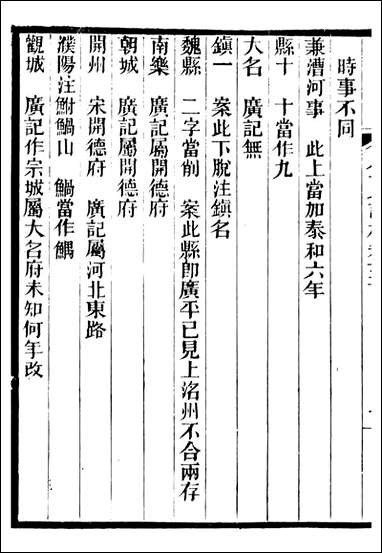 時事不同
兼漕河事　此上當加泰和六年
縣十　十當作九
大名　廣記無
鎮一　案此下脫注鎮名
魏縣　二字當削　案此縣即廣平已見上洺州不合兩存
南樂　廣記屬開德府
朝城　廣記屬開德府
開州　宋開德府　廣記屬河北東路
濮陽注鮒鰯山　鰯當作鰅
觀城　廣記作宗城屬大名府未知何年改